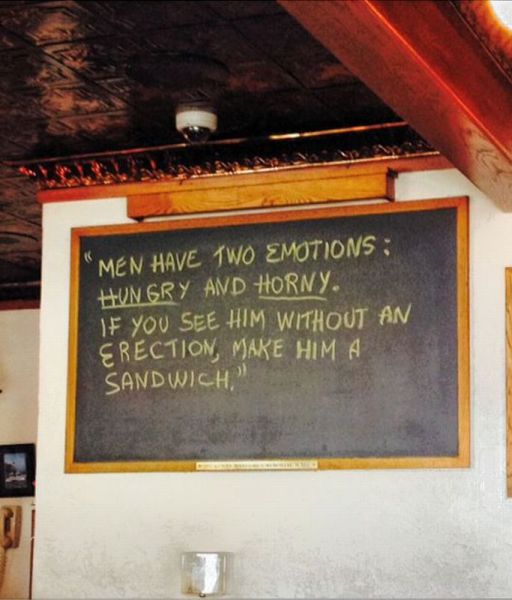 "MEN HAVE TWO EMOTIONS:
HUNGRY AND HORNY.
IF YOU SEE HIM WITHOUT AN
ERECTION, MAKE HIM A
SANDWICH."